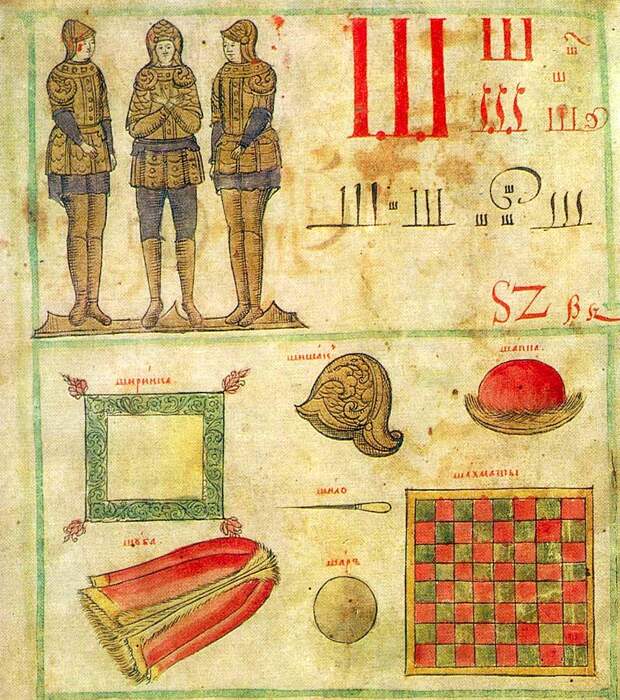 Ш Ш ш
ш
Ш Ш
Ш ш Ш ш ш ш Ш
SZ
ши́ринка
шиша́къ
шапка.
шило
ша́хматы
шу́ба.
ша́ръ